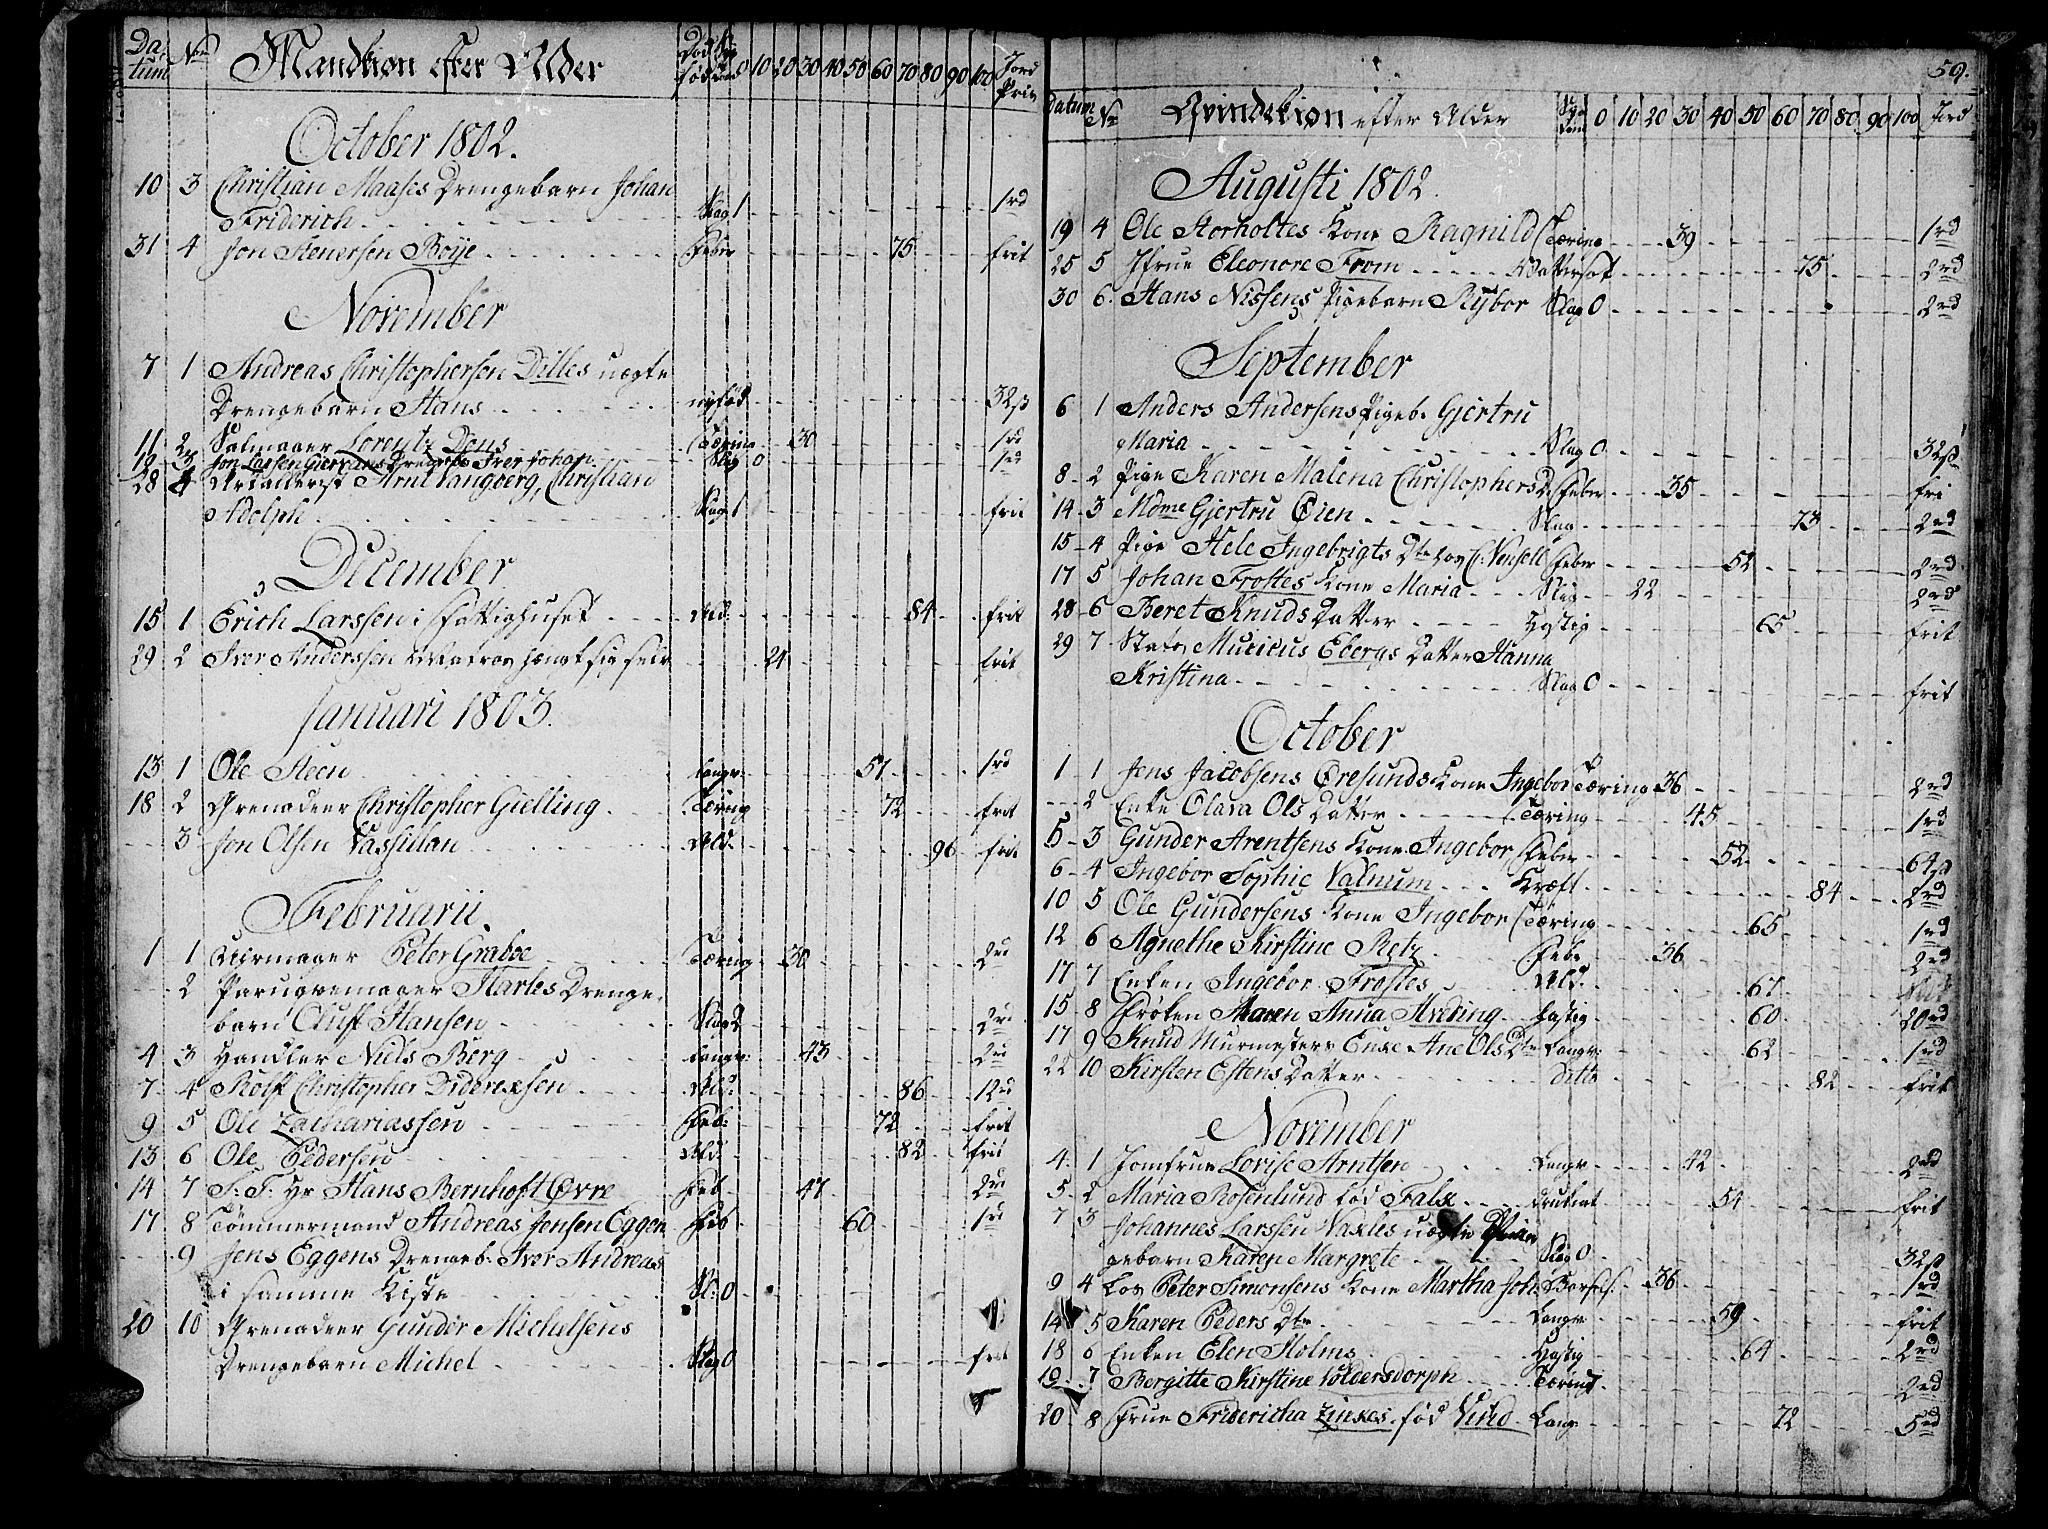 Da,
tum No Mandkiøn efter Alder 0 10 20 30 40 50 60 70 80 90 100 Jord
October 1802.
10 3 Christian Maases Drengebarn Johan
Friderich Slag 1 1 rd
31 4 Jon Stenersen Boye Feber 75 frit
November
7 1 Andreas Christophersen Dilles uægte
Drengebarn Hans nyfød 32 s
11 2 Salmager Lorentz Dens Tæring 30 1 rd
12 3 Jon Larsen Drengeb Iver Johan Slag 0 1 rd
28 4 Artallerist Arnt Vangberg, Christian
Adolph Slag 1 frit
December
15 1 Erich Larssen i Fattighuset Ald. 84 frit
29 2 Iver Anderssen Matros hængt sig selv 24 frit
Januari 1803.
13 1 Ole Steen Langv. 57 1 rd
18 2 Grenadeer Christopher Gielling Tæring 72 frit
3 Jon Olsen Vassillan Ald. 96 frit
Februarii.
1 1 Uurmager Peter Graboe Tæring 30 2 rd
2 Paruqvemager Harles Drenge
barn Clust Hansen Slag 2 2 rd
4 3 Handler Niels Berg Langv. 43 2 rd
7 4 Rolf Christopher Diderixsen Ald. 86 12 rd
9 5 Ole Zachariassen Feb. 72 frit
13 6 Ole Pedersen Ald. 82 frit
14 7 S. T. Hr Hans Bernhoft Øvre Feb 47 2 rd
17 8 Tømmermand Andreas Jensen Eggen Feb 60 1 rd
9 Jens Eggens Drengeb. Iver Andreas
i samme Kiste Sl. 0
20 10 Grenadeer Gunder Michelsens
Drengebarn Michel Slag 0 frit
59.
Datum No Qvindekiøn efter Alder 0 10 20 30 40 50 60 70 80 90 100 Jord
Augusti 1802.
19 4 Ole Storholtes Kone Ragnild Tæring 39 1 rd
25 5 Jfrue Eleonore From Vattersot 75 2 rd
30 6. Hans Nissens Pigebarn Rijbor Slag 0 2 rd
September
6 1 Anders Andersens Pigeb. Gjertru
Maria Slag 0 32 s
8 2 Pige Karen Malena Christophers D. Feber 35 fri
14 3 Mdme Gjertru Øien Slag 73 2 rd
15 4 Pige Hele Ingebrigts Dtr hos C. Vensell Feber 52 2 rd
17 5 Johan Frostes Kone Maria 22 2 rd
28 6 Beret Knuds Datter Hastig 65 frit
29 7 Mucicus Ebergs Datter Hanna
Kristina Slag 0 frit
October
1 1 Jens Jacobsens Øresunds Kone Ingebor Tæring 36 2 rd
2 Enke Olava Ols Datter Tæring 45 1 rd
5 3 Gunder Arentsens Kone Ingebor Feber 52 64 s
6 4 Ingebor Sophie Valnum Kræft 84 2 rd
10 5 Ole Gundersens Kone Ingebor Tæring 65 1 rd
12 6 Agnethe Kirstine Retz Feb. 36 2 rd
17 7 Enken Ingebor Frostes Ald. 67
15 8 Frøken Maren Anna Hveding Hastig 60 20 rd
17 9 Knud Murmesters Enke Ane Ols Dtr Langv. 62 1 rd
22 10 Kirsten Estens Datter ditto 82 frit
November
4 1 Jomfrue Lovise Arntsen Langv 42 2 rd
5 2 Maria Rosenlund fød Falx Druknet 54 frit
7 3 Johannes Larssen Vaxles uægte Pi
gebarn Karen Margrete Slag 0 32 s
9 4 Los Peter Simonsens Kone Martha Joh. Barsels. 36 1 rd
14 5 Karen Peders Dtr Langv 59 frit
18 6 Enken Elen Holms Hastig 64 2 rd
19 7 Bergitte Kirstine Voldersdorph Tæring 2 rd
20 8 Frue Fridericha Zinxes fød Vind Langv 72 5 rd